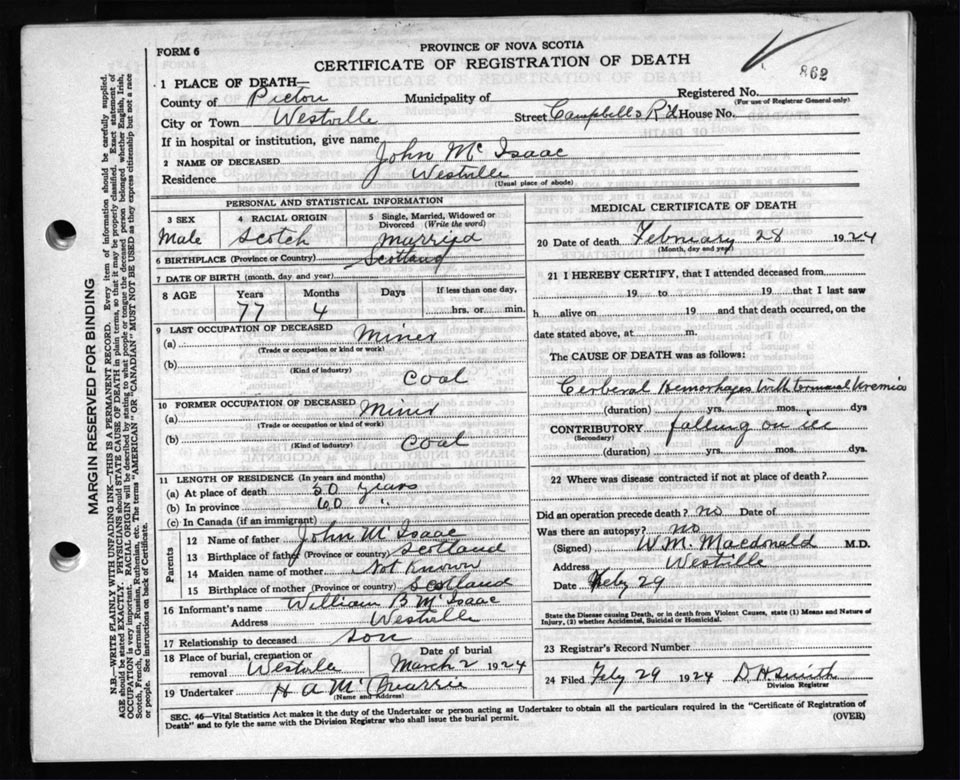 FORM 6
PROVINCE OF NOVA SCOTIA
CERTIFICATE OF REGISTRATION OF DEATH
862
1 PLACE OF DEATH—
Registered No.
(For use of Registrar General only)
County of Pictou Municipality of
City or Town Westville Street Campbells Rd House No.
If in hospital or institution, give name
2 NAME OF DECEASED John Mc Isaac
Residence Westville
(Usual place of abode)
PERSONAL AND STATISTICAL INFORMATION
3 SEX 4 RACIAL ORIGIN 5 Single, Married, Widowed or Divorced (Write the word)
Male Scotch Married
6 BIRTHPLACE (Province or Country) Scotland
7 DATE OF BIRTH (month, day and year)
8 AGE Years Months Days If less than one day,
77 4 hrs. or min.
9 LAST OCCUPATION OF DECEASED
(a) Miner
(Trade or occupation or kind or work)
(b) Coal
(Kind of industry)
10 FORMER OCCUPATION OF DECEASED
(a) Miner
(Trade or occupation or kind or work)
(b) Coal
(Kind of industry)
11 LENGTH OF RESIDENCE (In years and months)
(a) At place of death 50 years
(b) In province 60 "
(c) In Canada (if an immigrant)
Parents
12 Name of father John Mc Isaac
13 Birthplace of father (Province or country) Scotland
14 Maiden name of mother Not known
15 Birthplace of mother (Province or country) Scotland
16 Informant's name William B Mc Isaac
Address Westville
17 Relationship to deceased son
18 Place of burial, cremation or removal Westville
Date of burial
March 2 1924
19 Undertaker H A Mc Quarrie
(Name and Address)
MEDICAL CERTIFICATE OF DEATH
20 Date of death February 28 1924
(Month, day and year)
21 I HEREBY CERTIFY, that I attended deceased from
19 to 19 that I last saw
h alive on 19 and that death occurred, on the
date stated above, at m.
The CAUSE OF DEATH was as follows:
Cerberal Hemorhages with terminal Uremia
(duration) yrs. mos. dys
CONTRIBUTORY falling on ice
(Secondary)
(duration) yrs. mos. dys.
22 Where was disease contracted if not at place of death?
Did an operation precede death? no Date of
Was there an autopsy? no
(Signed) W.M. Macdonald M.D.
Address Westville
Date Feby 29
State the Disease causing Death, or in death from Violent Causes, state (1) Means and Nature of
Injury, (2) whether Accidental, Suicidal or Homicidal.
23 Registrar's Record Number
24 Filed Feby 29 1924 D H Smith
Division Registrar
SEC. 46—Vital Statistics Act makes it the duty of the Undertaker or person acting as Undertaker to obtain all the particulars required in the "Certificate of Registration of
Death" and to fyle the same with the Division Registrar who shall issue the burial permit.
(OVER)
MARGIN RESERVED FOR BINDING
N.B.—WRITE PLAINLY WITH UNFADING INK—THIS IS A PERMANENT RECORD. Every item of information should be carefully supplied.
AGE should be stated EXACTLY. PHYSICIANS should STATE CAUSE OF DEATH in plain terms, so that it may be properly classified. Exact statement of
OCCUPATION is very important. RACIAL ORIGIN will be described by stating to what people or tongue the deceased person belonged whether English, Irish,
Scotch, French, German, Russian, Ruthenian, etc. The terms "AMERICAN" OR "CANADIAN" MUST NOT BE USED as they express citizenship but not a race
or people. See instructions on back of Certificate.